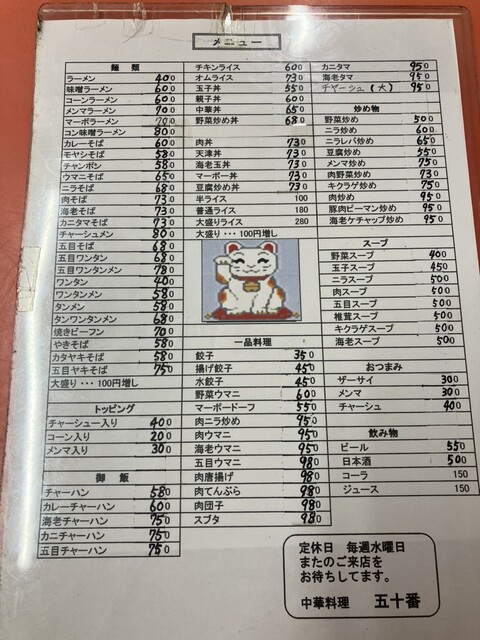 メニュー
麺 類
ラーメン 400
味噌ラーメン 600
コーンラーメン 600
メンマラーメン 700
マーボラーメン 700
コン味噌ラーメン 800
カレーそば 600
モヤシそば 580
チャンポン 580
ウマニそば 650
ニラそば 680
肉そば 730
海老そば 730
カニタマそば 730
チャーシュメン 800
五目そば 680
五目ワンタン 680
五目ワンタンメン 780
ワンタン 400
ワンタンメン 580
タンメン 580
タンワンタンメン 680
焼きビーフン 700
やきそば 580
カタヤキそば 580
五目ヤキそば 750
大盛り・・・100円増し
トッピング
チャーシュー入り 400
コーン入り 200
メンマ入り 300
御 飯
チャーハン 580
カレーチャーハン 600
海老チャーハン 750
カニチャーハン 750
五目チャーハン 750
チキンライス 600
オムライス 730
玉子丼 550
親子丼 600
中華丼 650
野菜炒め丼 680
肉丼 730
天津丼 730
海老玉丼 730
マーボー丼 730
豆腐炒め丼 730
半ライス 100
普通ライス 180
大盛りライス 280
大盛り・・・100円増し
一品料理
餃子 350
揚げ餃子 450
水餃子 450
野菜ウマニ 600
マーボードーフ 550
肉ニラ炒め 950
肉ウマニ 950
海老ウマニ 950
五目ウマニ 980
肉唐揚げ 980
肉てんぷら 980
肉団子 980
スブタ 980
カニタマ 950
海老タマ 950
チャーシュ(大) 950
炒め物
野菜炒め 500
ニラ炒め 600
ニラレバ炒め 650
豆腐炒め 550
メンマ炒め 750
肉野菜炒め 730
キクラゲ炒め 750
肉炒め 950
豚肉ピーマン炒め 950
海老ケチャップ炒め 950
スープ
野菜スープ 400
玉子スープ 450
ニラスープ 500
肉スープ 500
五目スープ 500
椎茸スープ 500
キクラゲスープ 500
海老スープ 500
おつまみ
ザーサイ 300
メンマ 300
チャーシュ 400
飲み物
ビール 550
日本酒 500
コーラ 150
ジュース 150
定休日 毎週水曜日
またのご来店を
お待ちしてます。
中華料理 五十番